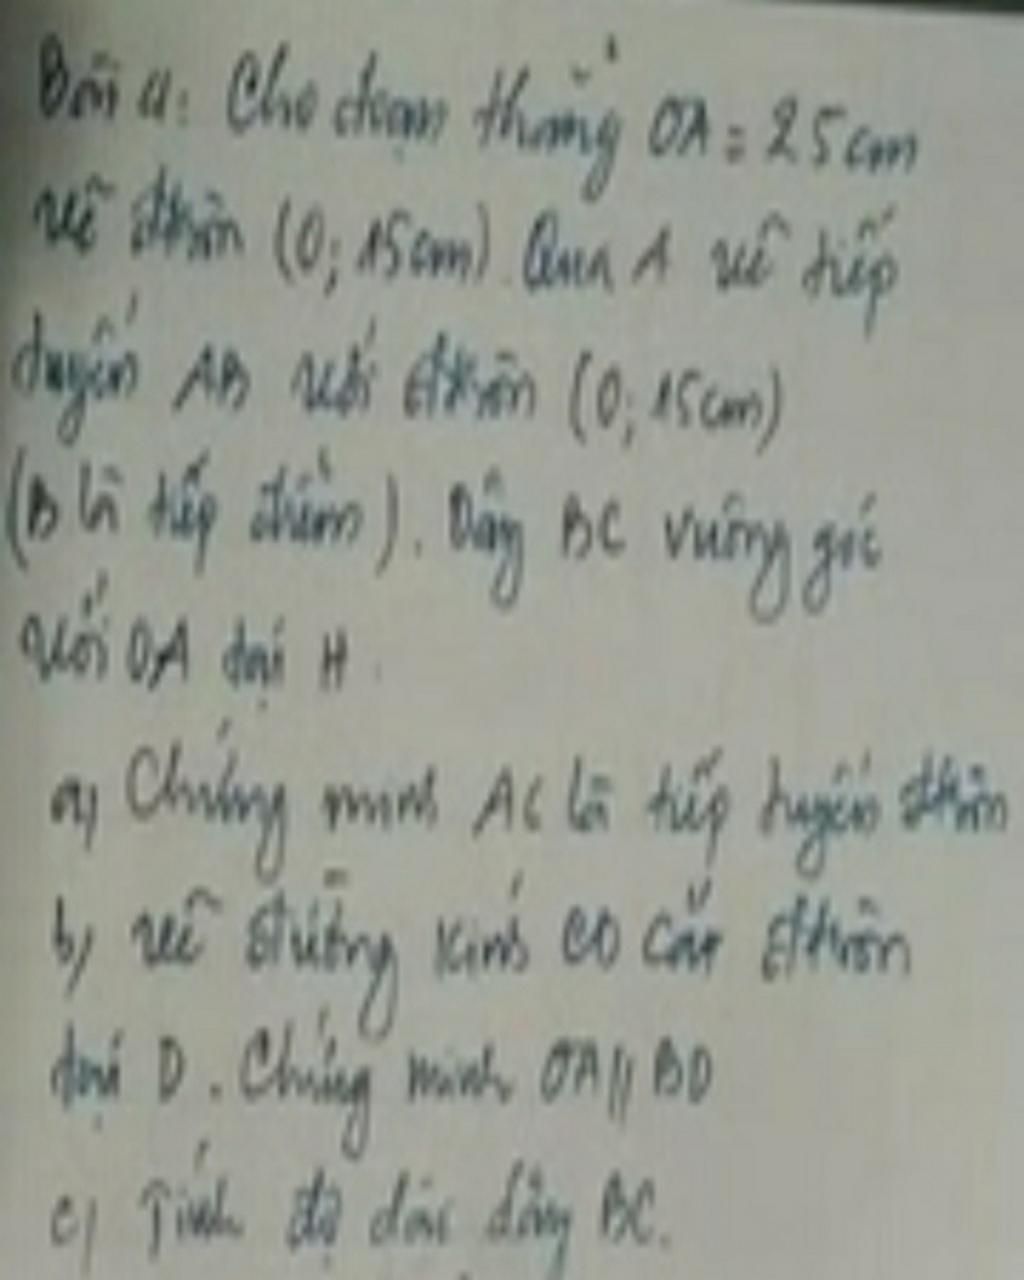 Bài 4: Cho đoạn thẳng OA = 25cm
vẽ đtròn (O; 15cm). Qua A vẽ tiếp
tuyến AB với đtròn (O; 15cm)
(B là tiếp điểm). Dây BC vuông góc
với OA tại H.
a) Chứng minh AC là tiếp tuyến đtròn
b) vẽ đường kính CO cắt đtròn
tại D. Chứng minh OA // BD
c) Tính độ dài dây BC.